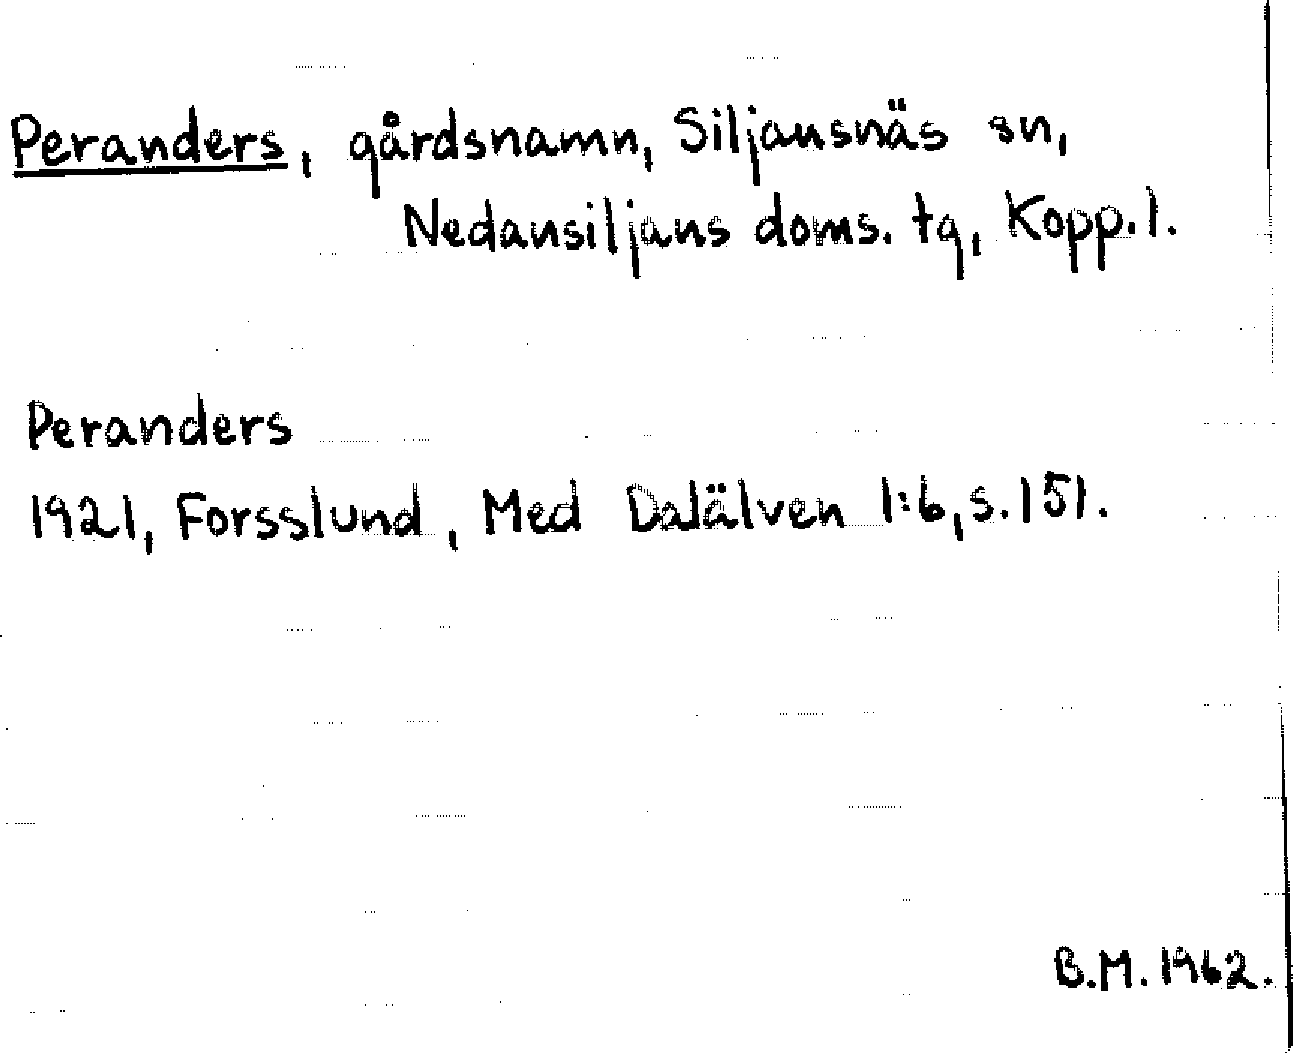 Peranders, gårdsnamn, Siljansnäs sn,
Nedansiljans doms. tg, Kopp. l.
Peranders
1921, Forsslund, Med Dalälven 1:6, s. 151.
B.M. 1962.